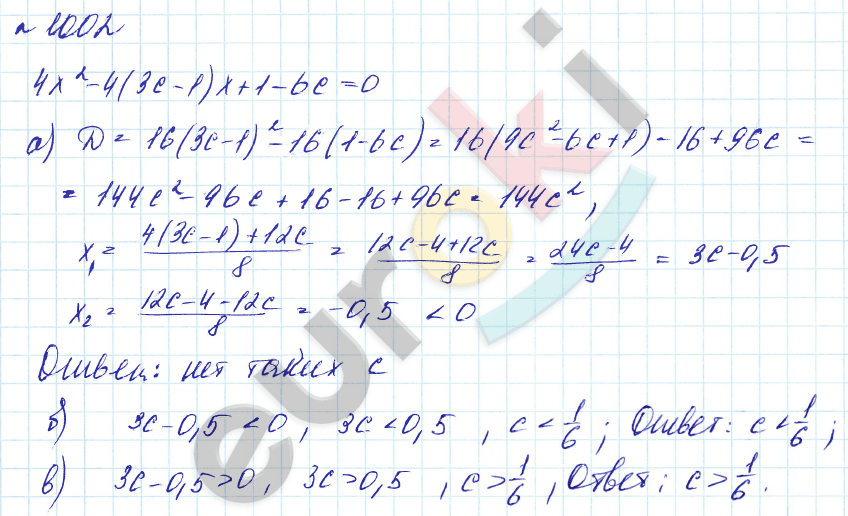 № 1002
4x² - 4(3c-1)x + 1 - 6c = 0
а) D = 16(3c-1)² - 16(1-6c) = 16(9c² - 6c + 1) - 16 + 96c =
= 144c² - 96c + 16 - 16 + 96c = 144c²,
x₁ = (4(3c-1)+12c)/8 = (12c-4+12c)/8 = (24c-4)/8 = 3c-0,5
x₂ = (12c-4-12c)/8 = -0,5 < 0
Ответ: нет таких c
б) 3c-0,5 < 0, 3c < 0,5, c < 1/6; Ответ: c < 1/6;
в) 3c-0,5 > 0, 3c > 0,5, c > 1/6, Ответ: c > 1/6.
euroki